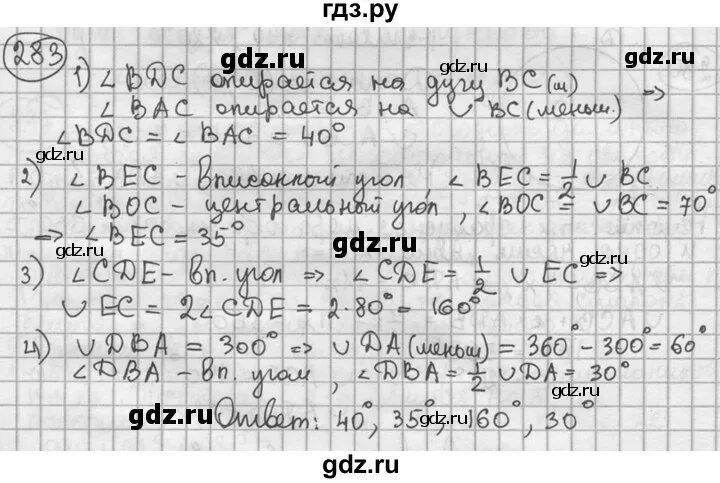 гдз.ру
283
gdz.ru gdz.ru
1) ∠BDC опирается на дугу BC (м)
∠BAC опирается на ∪ BC (меньш.) ⇒
∠BDC = ∠BAC = 40°
gdz.ru gdz.ru
2) ∠BEC - вписанный угол, ∠BEC = 1/2 ∪ BC
∠BOC - центральный угол, ∠BOC = ∪ BC = 70°
⇒ ∠BEC = 35°
gdz.ru gdz.ru gdz.ru
3) ∠CDE - вп. угол ⇒ ∠CDE = 1/2 ∪ EC ⇒
∪ EC = 2∠CDE = 2·80° = 160°
gdz.ru gdz.ru
4) ∪ DBA = 300° ⇒ ∪ DA (меньш) = 360° - 300° = 60°
∠DBA - вп. угол, ∠DBA = 1/2 ∪ DA = 30°
gdz.ru gdz.ru gdz.ru
Ответ: 40°, 35°, 160°, 30°
gdz.ru